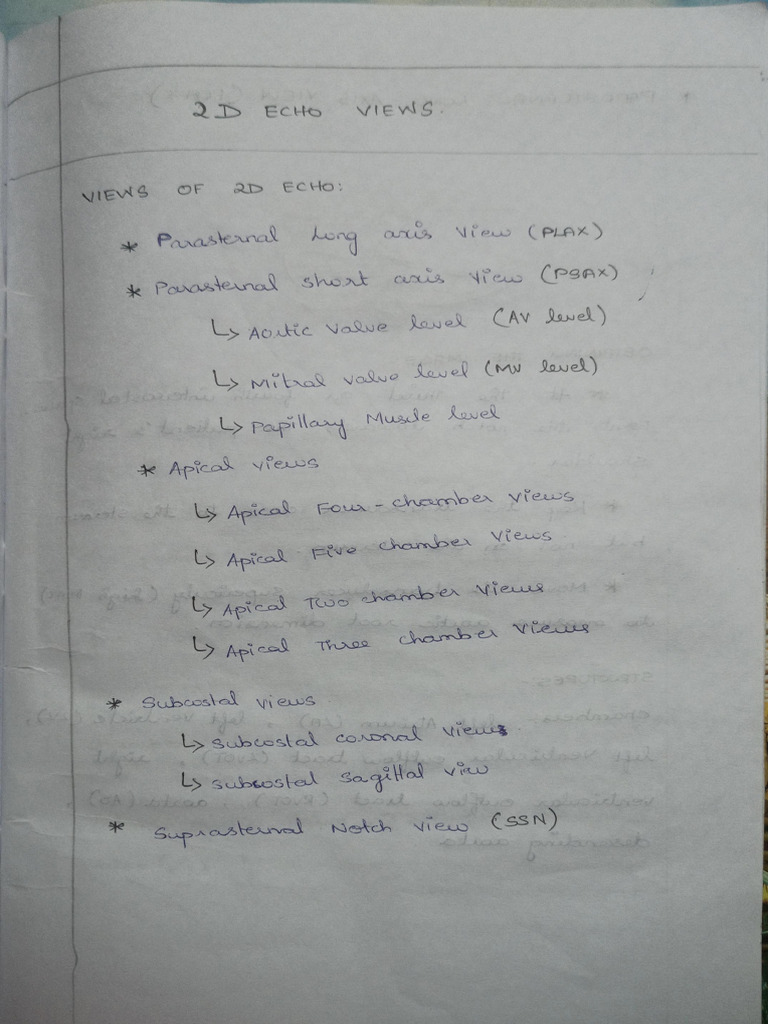 2D ECHO VIEWS.
VIEWS OF 2D ECHO:
* Parasternal Long axis view (PLAX)
* Parasternal short axis view (PSAX)
↳ Aortic valve level (AV level)
↳ Mitral valve level (MV level)
↳ Papillary Muscle level
* Apical views
↳ Apical Four-chamber views
↳ Apical Five chamber views
↳ Apical Two chamber views
↳ Apical Three chamber views
* Subcostal views
↳ subcostal coronal views
↳ subcostal sagittal view
* Suprasternal Notch view (SSN)